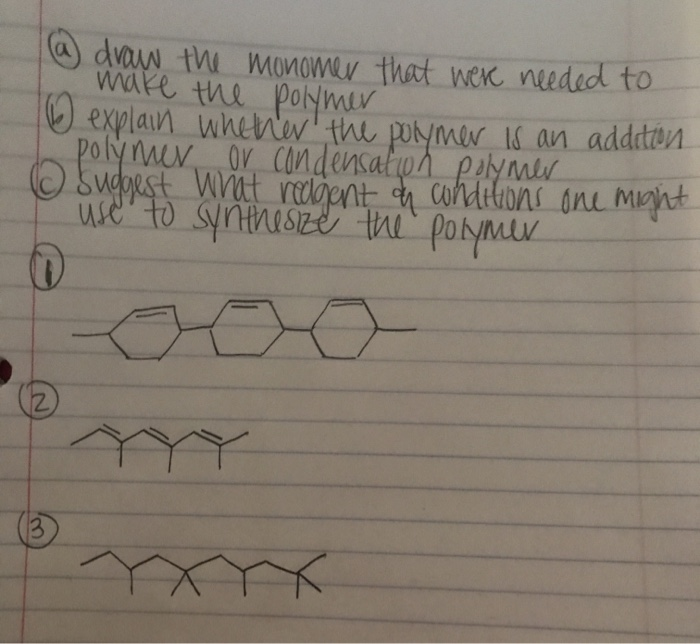 (a) draw the monomer that were needed to
make the polymer
(b) explain whether the polymer is an addition
polymer or condensation polymer
(c) suggest what reagent & conditions one might
use to synthesize the polymer
(1)
(2)
(3)